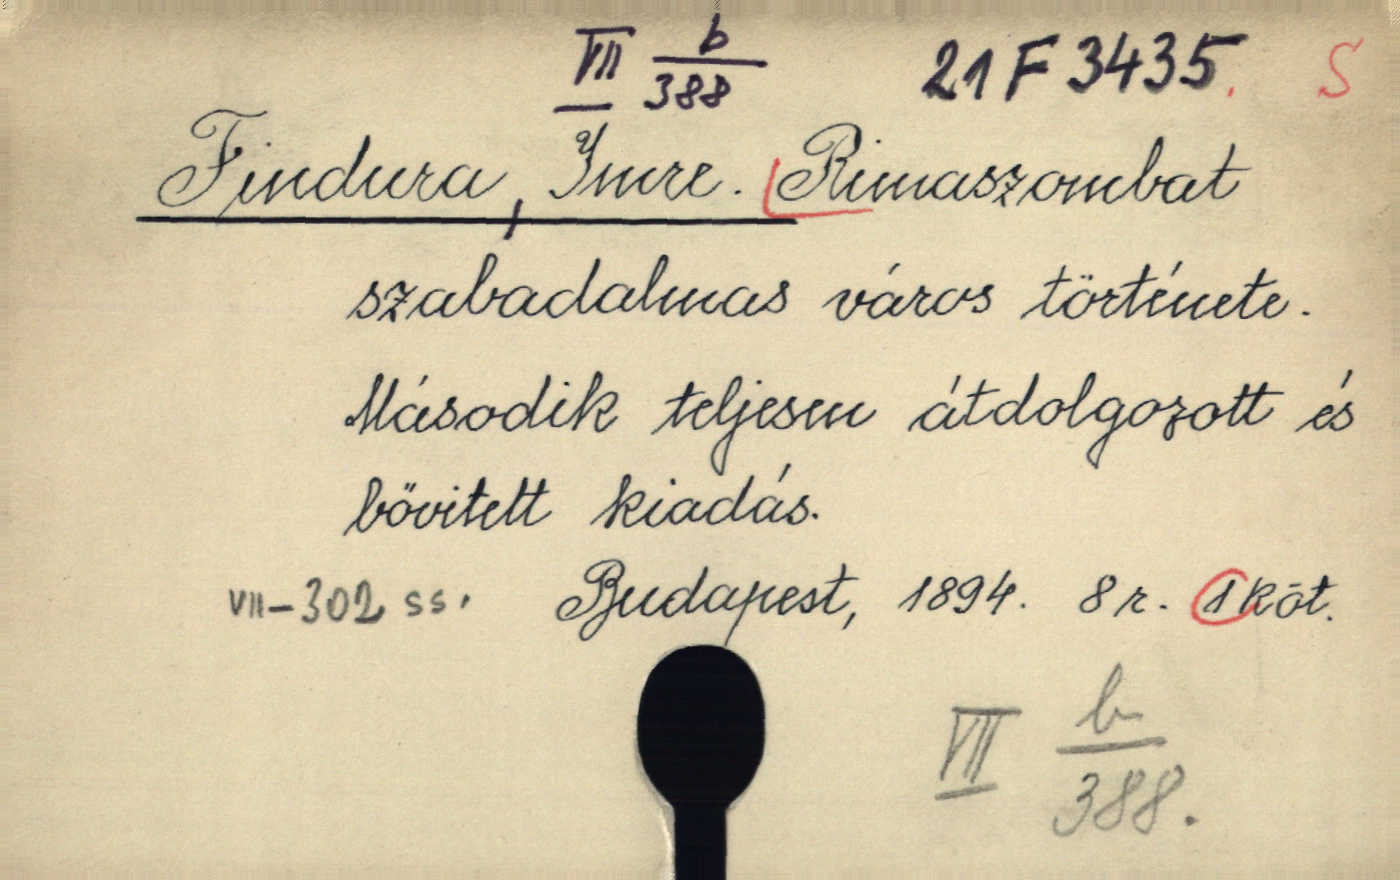 VII b/388 21 F 3435. S
Findura, Imre. Rimaszombat
szabadalmas város története.
Második teljesen átdolgozott és
bővitett kiadás.
VII-302 ss. Budapest, 1894. 8 r. 1 köt.
VII b/388.